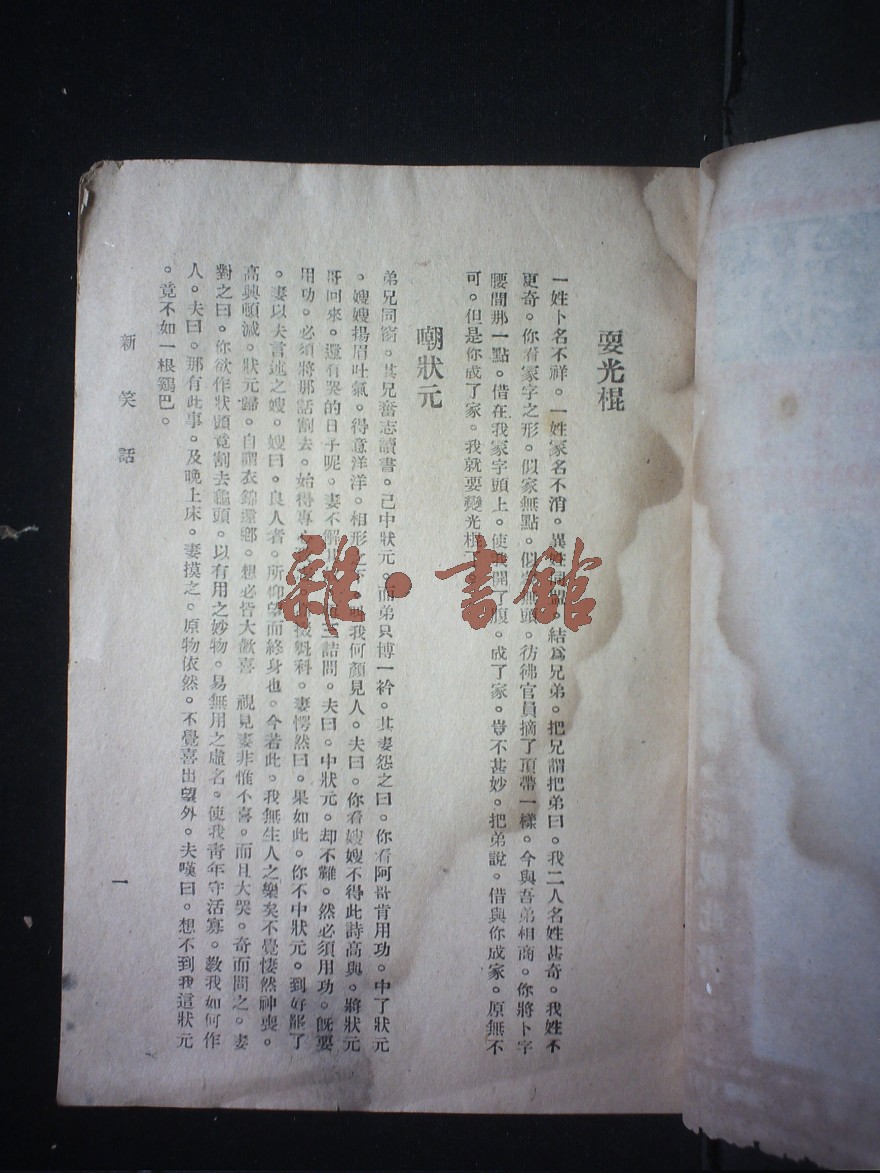 耍光棍
一姓卜名不祥。一姓冢名不消。異姓同盟。結爲兄弟。把兄謂把弟曰。我二人名姓甚奇。我姓不
更奇。你看冢字之形。似家無點。似冡無頭。彷彿官員摘了頂帶一樣。今與吾弟相商。你將卜字
腰間那一點。借在我冢字頭上。使我開了腹。成了家。豈不甚妙。把弟說。借與你成家。原無不
可。但是你成了家。我就要變光棍
嘲狀元
弟兄同窗。其兄奮志讀書。己中狀元。而弟只博一衿。其妻怨之曰。你看阿哥肯用功。中了狀元
。嫂嫂揚眉吐氣。得意洋洋。相形之 我何顏見人。夫曰。你看嫂嫂不得此詩高與。將狀元
哥回來。還有哭的日子呢。妻不解其 詰問。夫曰。中狀元。却不難。然必須用功。旣要
用功。必須將那話割去。始得專心 魁科。妻愕然曰。果如此。你不中狀元。到好罷了
。妻以夫言述之嫂。嫂曰。良人者。所仰望而終身也。今若此。我無生人之樂矣不覺悽然神喪。
高興頓滅。狀元歸。自謂衣錦還鄉。想必皆大歡喜 視見妻非惟不喜。而且大哭。奇而問之。妻
對之曰。你欲作狀頭竟割去龜頭。以有用之妙物。易無用之虛名。使我靑年守活寡。敎我如何作
人。夫曰。那有此事。及晚上床。妻摸之。原物依然。不覺喜出望外。夫嘆曰。想不到我這狀元
。竟不如一根鷄巴。
新笑話
一
雜·書館